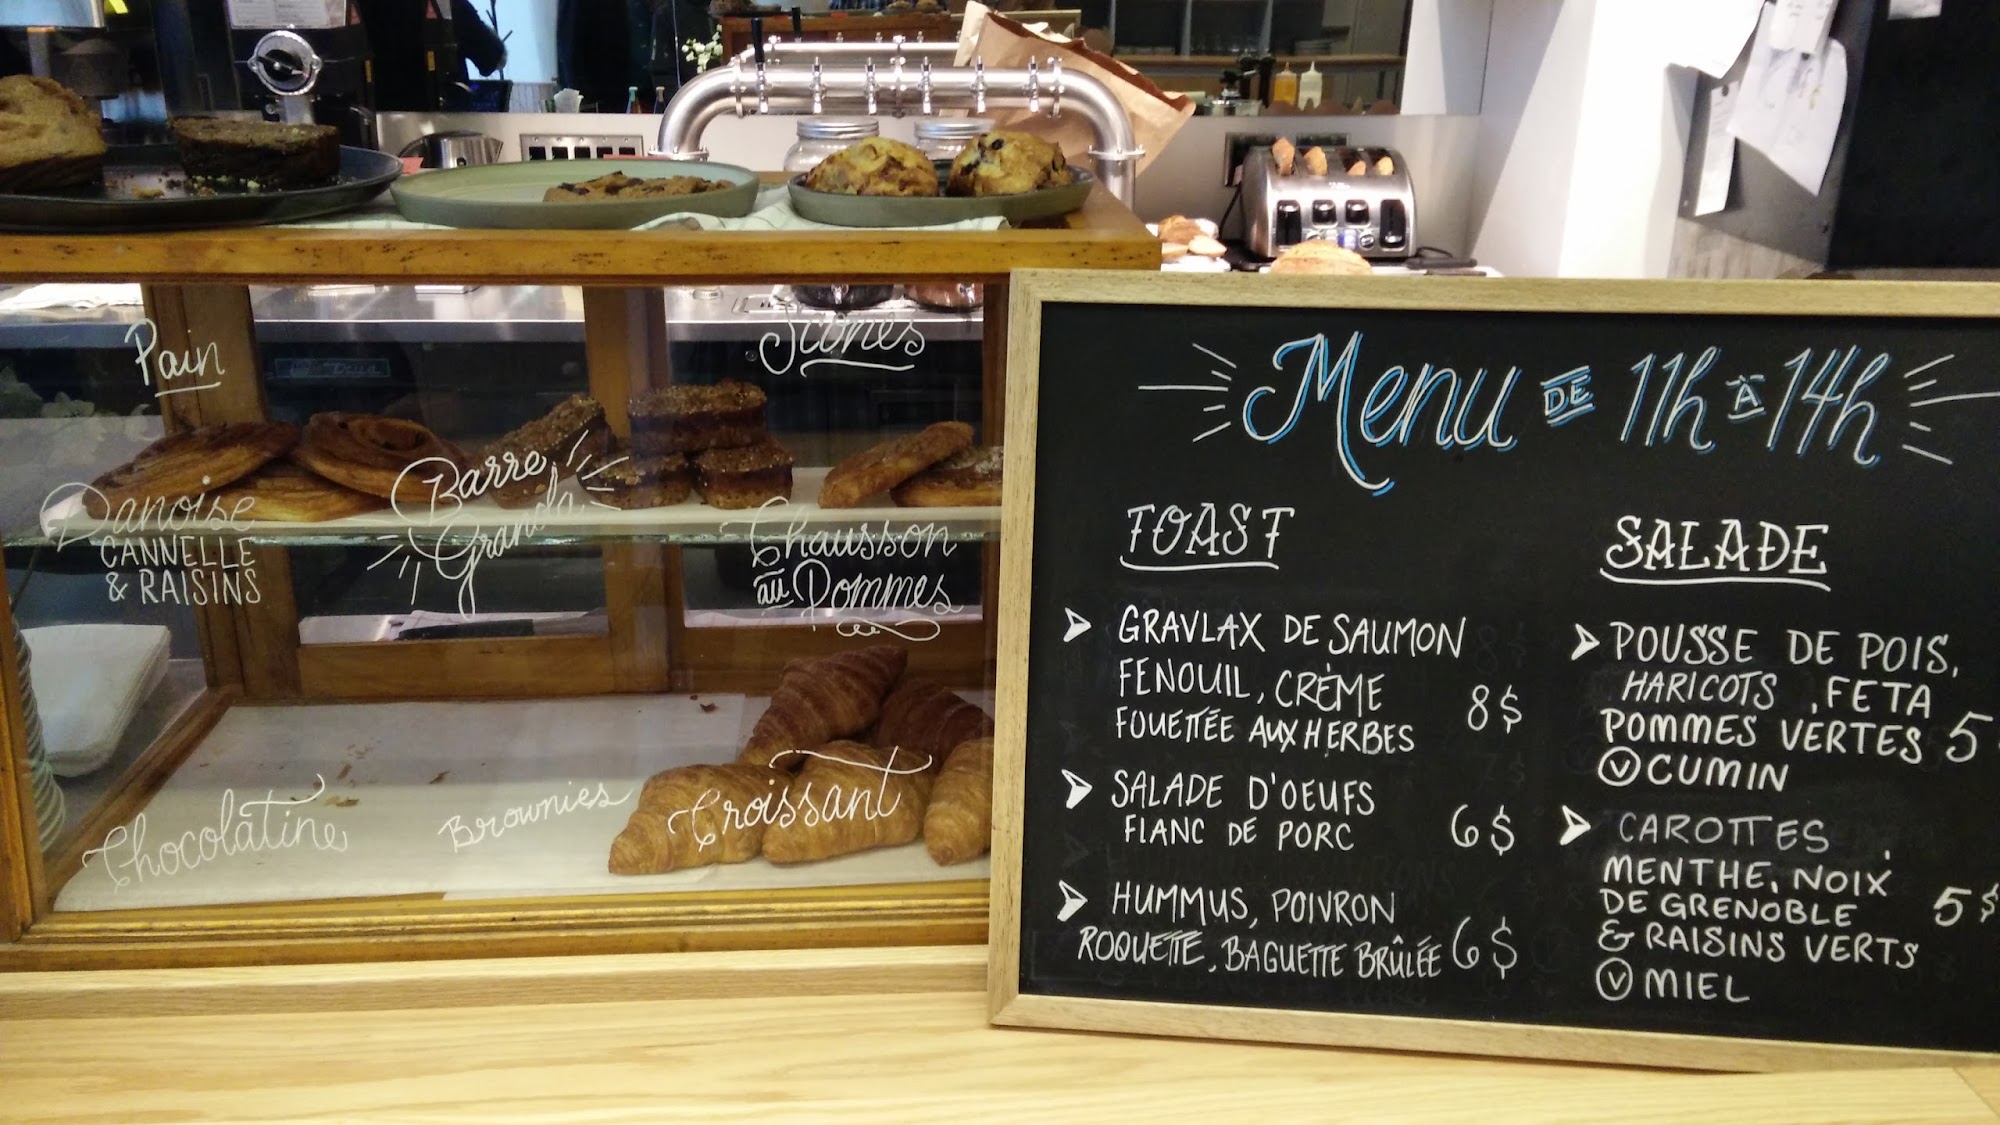 Pain
Scones
Danoise
CANNELLE
& RAISINS
Barre
Granola
Chausson
au Pommes
Chocolatine
Brownies
Croissant
Menu DE 11h À 14h
TOAST
GRAVLAX DE SAUMON
FENOUIL, CRÈME
FOUETTÉE AUX HERBES 8$
SALADE D'OEUFS
FLANC DE PORC 6$
HUMMUS, POIVRON
ROQUETTE, BAGUETTE BRÛLÉE 6$
SALADE
POUSSE DE POIS,
HARICOTS , FETA
POMMES VERTES 5
V CUMIN
CAROTTES ,
MENTHE, NOIX
DE GRENOBLE 5$
& RAISINS VERTS
V MIEL